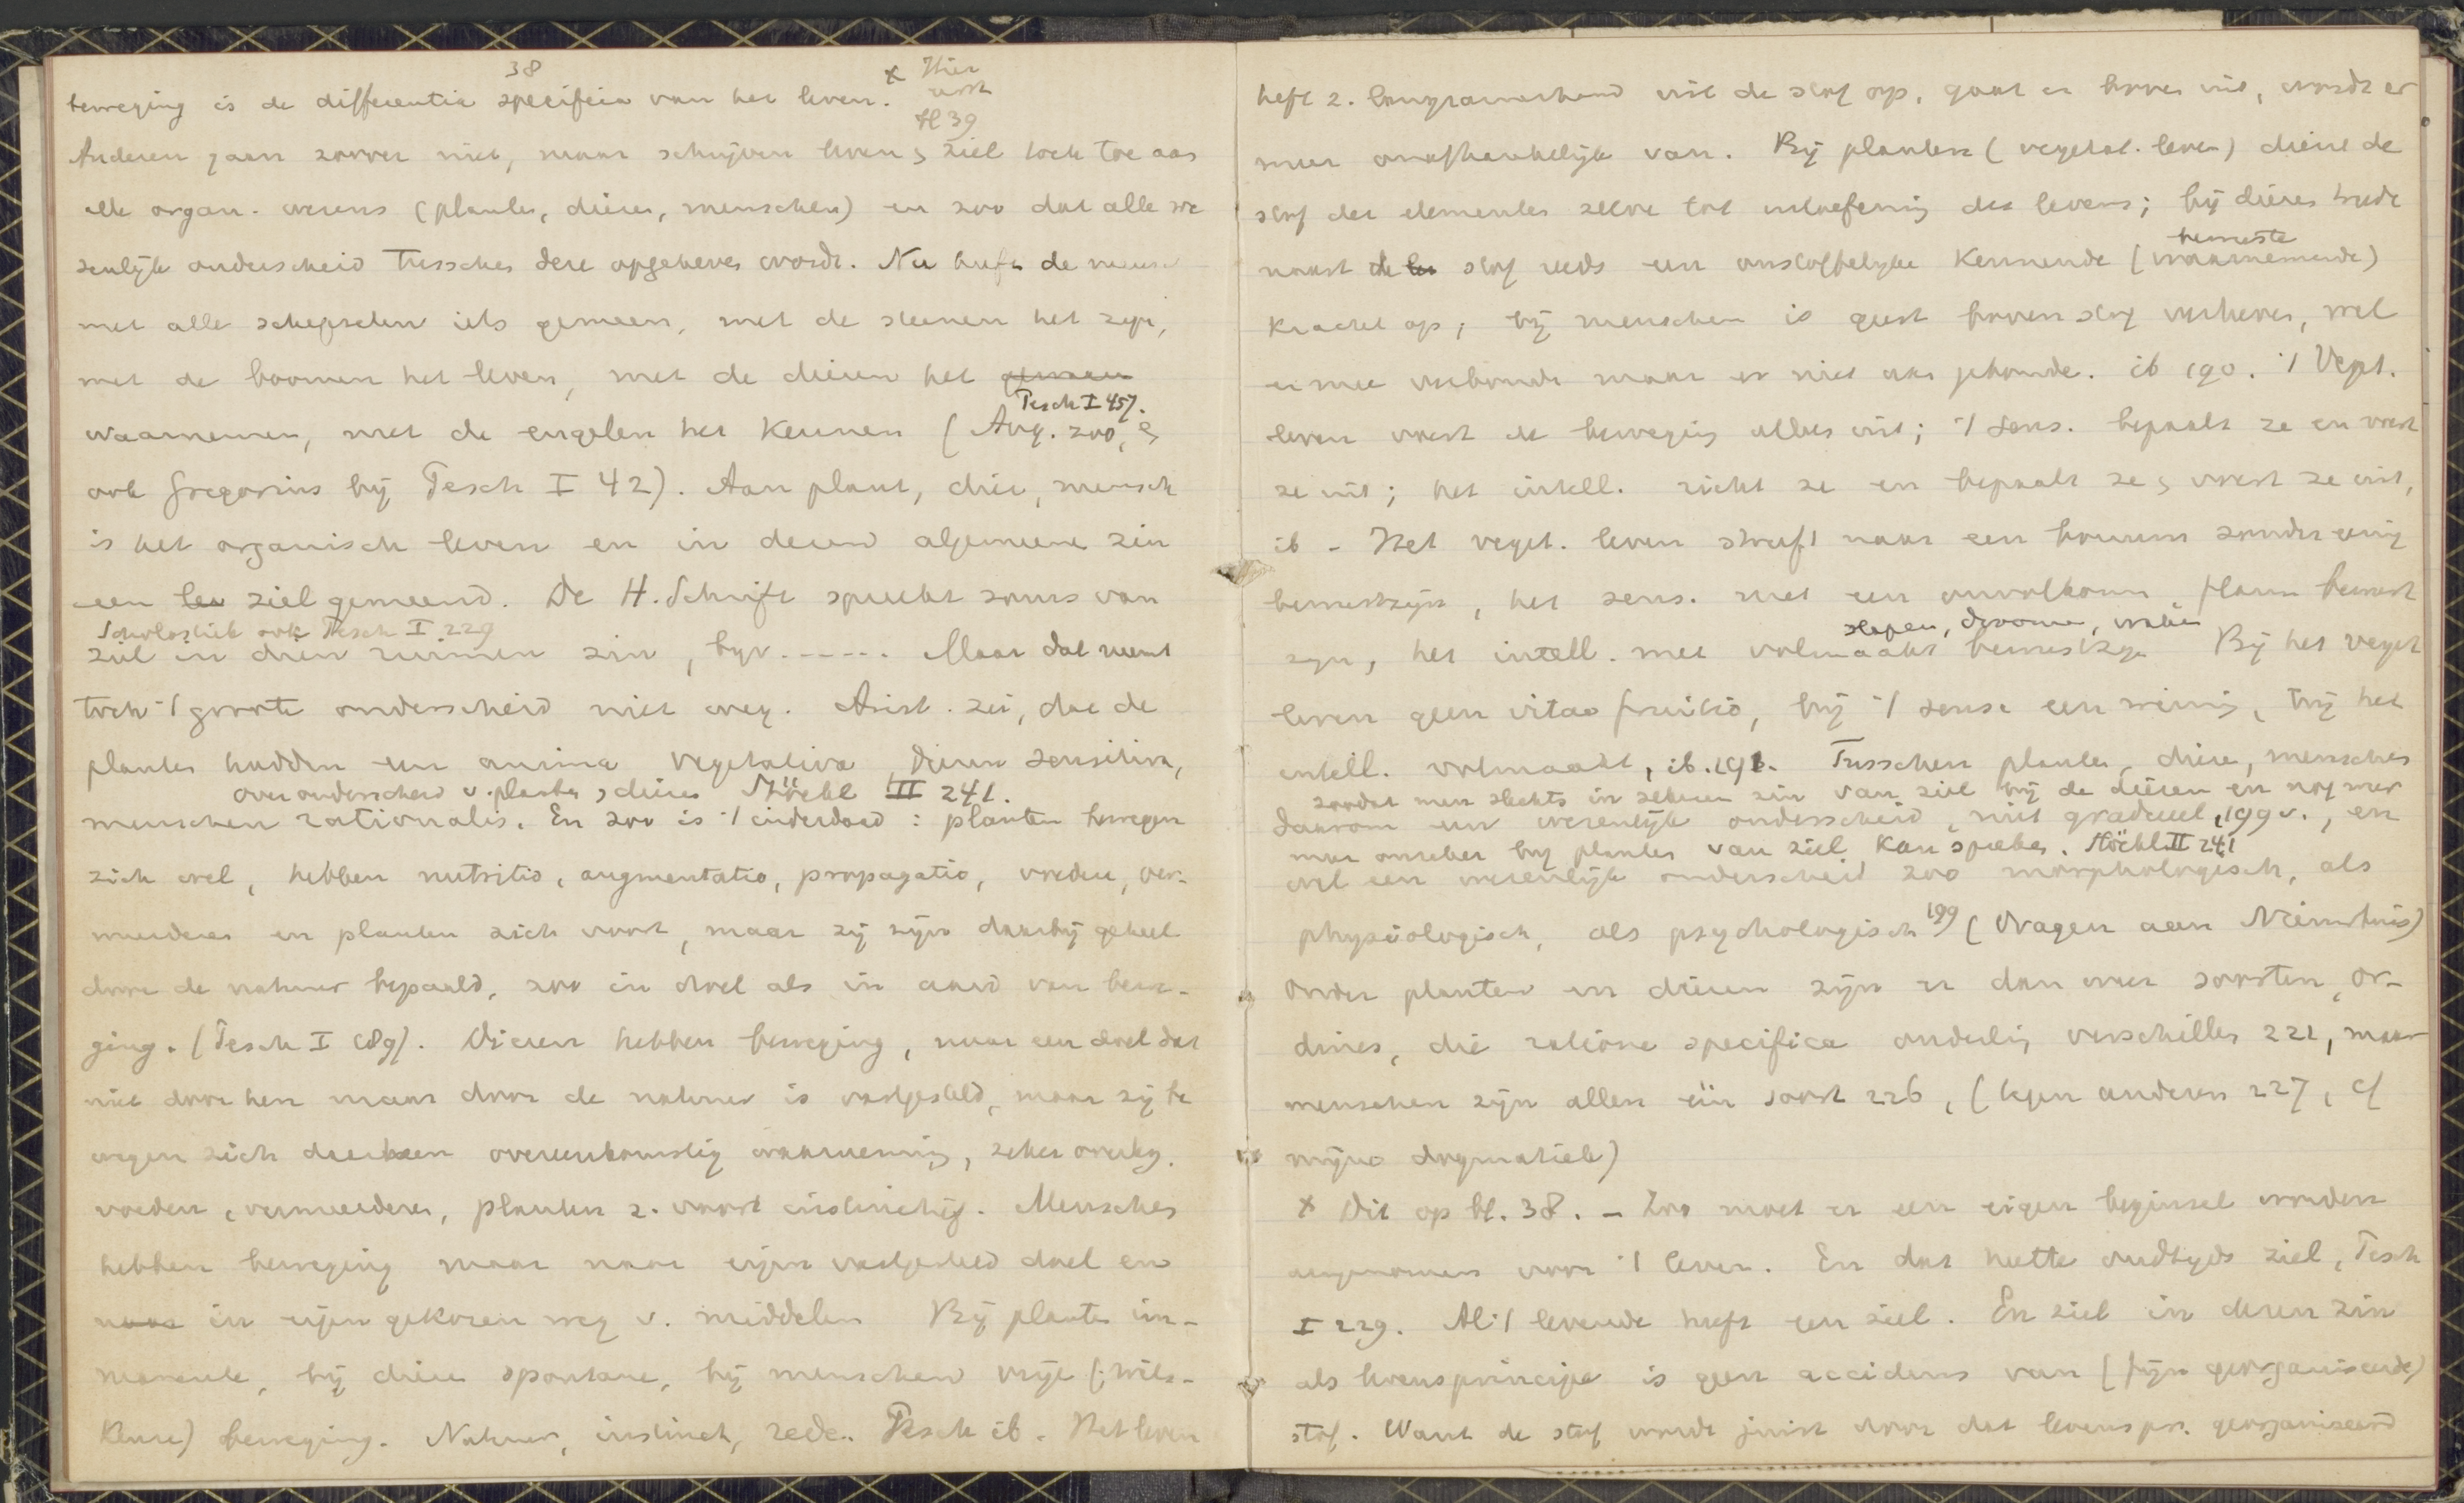 38
beweging is de differentia specifica van het leven. x Hier
Bl 39
Anderen gaan zoover niet, maar schrijven leven & ziel toch toe aan
alle organ. wezens (planten, dieren, menschen) en zoo dat alle we
zenlijk onderscheid tusschen deze opgeheven wordt. Nu heeft de mensch
met alle schepselen iets gemeen, met de steenen het zijn,
met de boomen het leven, met de dieren het
Pesch I 457.
waarnemen, met de engelen het kennen (Aug. zoo, &
ook Gregorius bij Pesch I 42). Aan plant, dier, mensch
is het organisch leven en in dezen algemeene zin
een ziel gemeend. De H. Schrift spreekt soms van
Scholastiek ook Pesch I 229
ziel in dien ruimen zin, bijv ----- Maar dat neemt
toch 't groote onderscheid niet weg. Arist. zei, dat de
planten hadden een anima vegetativa dieren sensitiva,
over onderscheid v. planten & dieren Stöckl II 241.
menschen rationalis. En zoo is 't inderdaad: planten bewegen
zich wel, hebben nutritio, augmentatio, propagatio, voeden, ver-
meerderen en planten zich voort, maar zij zijn daarbij geheel
door de natuur bepaald, zoo in doel als in aard van bewe-
ging. (Pesch I 189). Dieren hebben beweging, naar een doel dat
niet door hen maar door de natuur is vastgesteld, maar zij be
wegen zich overeenkomstig waarneming, zeker overleg.
voeden, vermeerderen, planten z. voort instinctief. Menschen
hebben beweging maar naar eigen vastgesteld doel en
in eigen gekozen weg v. middelen Bij planten im-
manente, bij dieren spontane, bij menschen vrije (wils-
keuze) beweging. Natuur, instinct, rede. Pesch ib. Het leven
heft z. langzamerhand uit de stof op, gaat er boven uit, wordt er
meer onafhankelijk van. Bij planten (vegetat. leven) dient de
stof der elementen zelve tot uitoefening des levens; bij dieren treedt
bewuste
naast stof reeds een onstoffelijke kennende (waarnemende)
kracht op; bij menschen is geest boven stof verheven, wel
er mee verbonden maar er niet aan gebonden. ib 190. 't Veget.
leven voert de beweging alleen uit; 't sens. bepaalt ze en voert
ze uit; het intell. richt ze en bepaalt ze & voert ze uit,
ib - Het veget. leven streeft naar een zonder eenig
bewustzijn, het sens. met een onvolkomen, flauw bewust
slapen, droomen, waken
zijn, het intell. met volmaakt bewustzijn Bij het veget
leven geen vitae fruitio, bij 't sense een weinig, bij het
intell. volmaakt, ib. 191. Tusschen planten, dieren, menschen
zoodat men slechts in zekeren zin van ziel bij de dieren en nog meer
daarom een wezenlijk onderscheid, niet gradueel, 199v., en
maar bij planten van ziel kan spreken. Stöckl II 241
wel een wezenlijk onderscheid zoo morphologisch, als
physiologisch, als psychologisch 199 (Vragen aan
Onder planten en dieren zijn er dan weer soorten, or-
dines, die ratione specifica onderling verschillen 221, maar
menschen zijn allen één soort 226, (tegen anderen 227, cf
mijne dogmatiek)
x Dit op bl. 38. - Zoo moet er een eigen beginsel worden
aangenomen voor 't leven. En dat heette oudtijds ziel, Pesch
I 229. Al 't levende heeft een ziel. En ziel in dezen zin
als levensprincipe is geen accidens van (fijn georganiseerde)
stof. Want de stof wordt juist door dat levenspr. georganiseerd